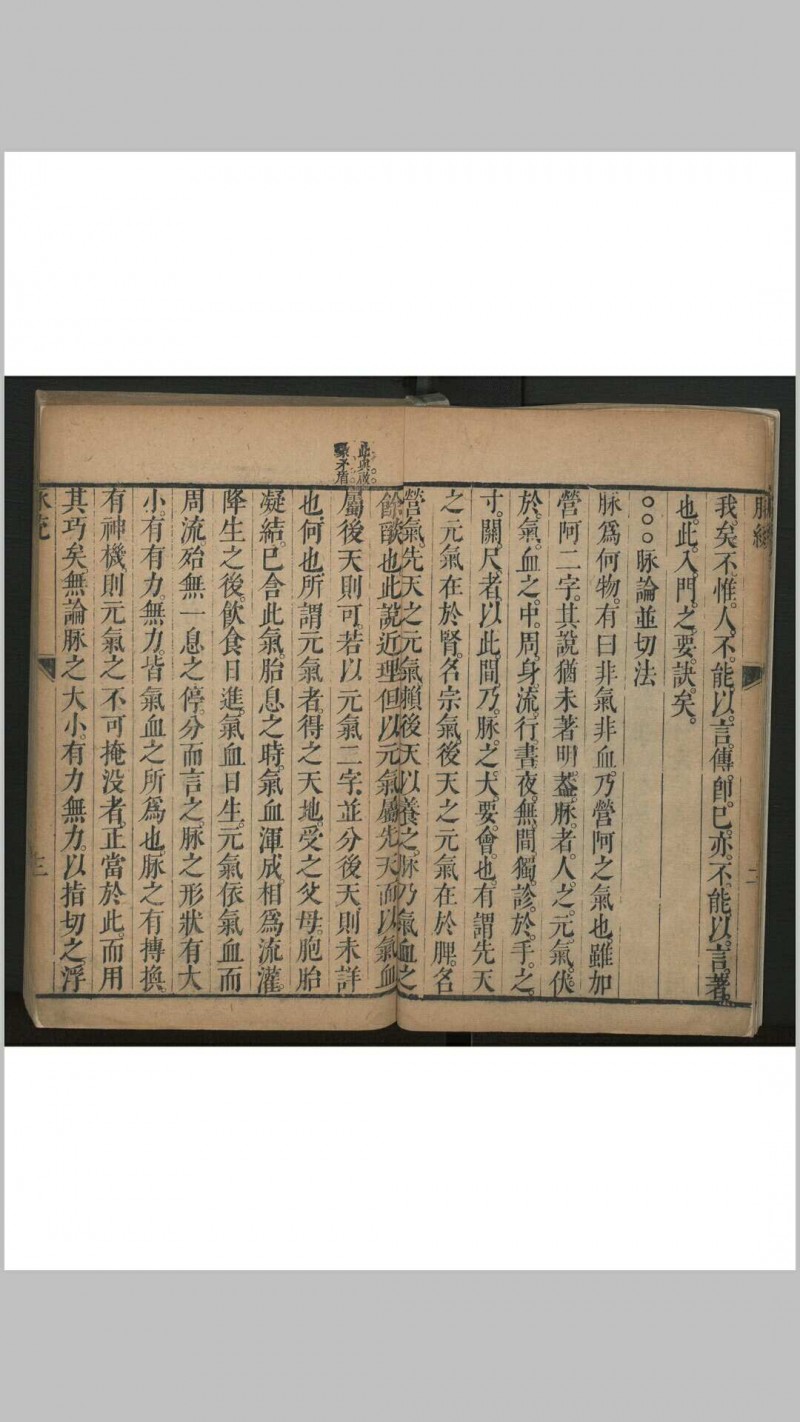 脉
二
我矣不惟人不能以言傳卽已亦不能以言著
也此入門之要訣矣
○○○脉論並切法
脉爲何物有曰非氣非血乃營阿之氣也雖加
營阿二字其說猶未著明葢脉者人之元氣伏
於氣血之中周身流行晝夜無間獨診於手之
寸關尺者以此間乃脉之大要會也有謂先天
之元氣在於腎名宗氣後天之元氣在於脾名
營氣先天之元氣賴後天以養之脉乃氣血之
餘也此說近理但以元氣屬先天而以氣血
屬後天則可若以元氣二字並分後天則未詳
也何也所謂元氣者得之天地受之父母胞胎
凝結已含此氣胎息之時氣血渾成相爲流灌
降生之後飲食日進氣血日生元氣依氣血而
周流殆無一息之停分而言之脉之形狀有大
小有有力無力皆氣血之所爲也脉之有摶換
有神機則元氣之不可掩没者正當於此而用
其巧矣無論脉之大小有力無力以指切之浮
三
此與
矛盾